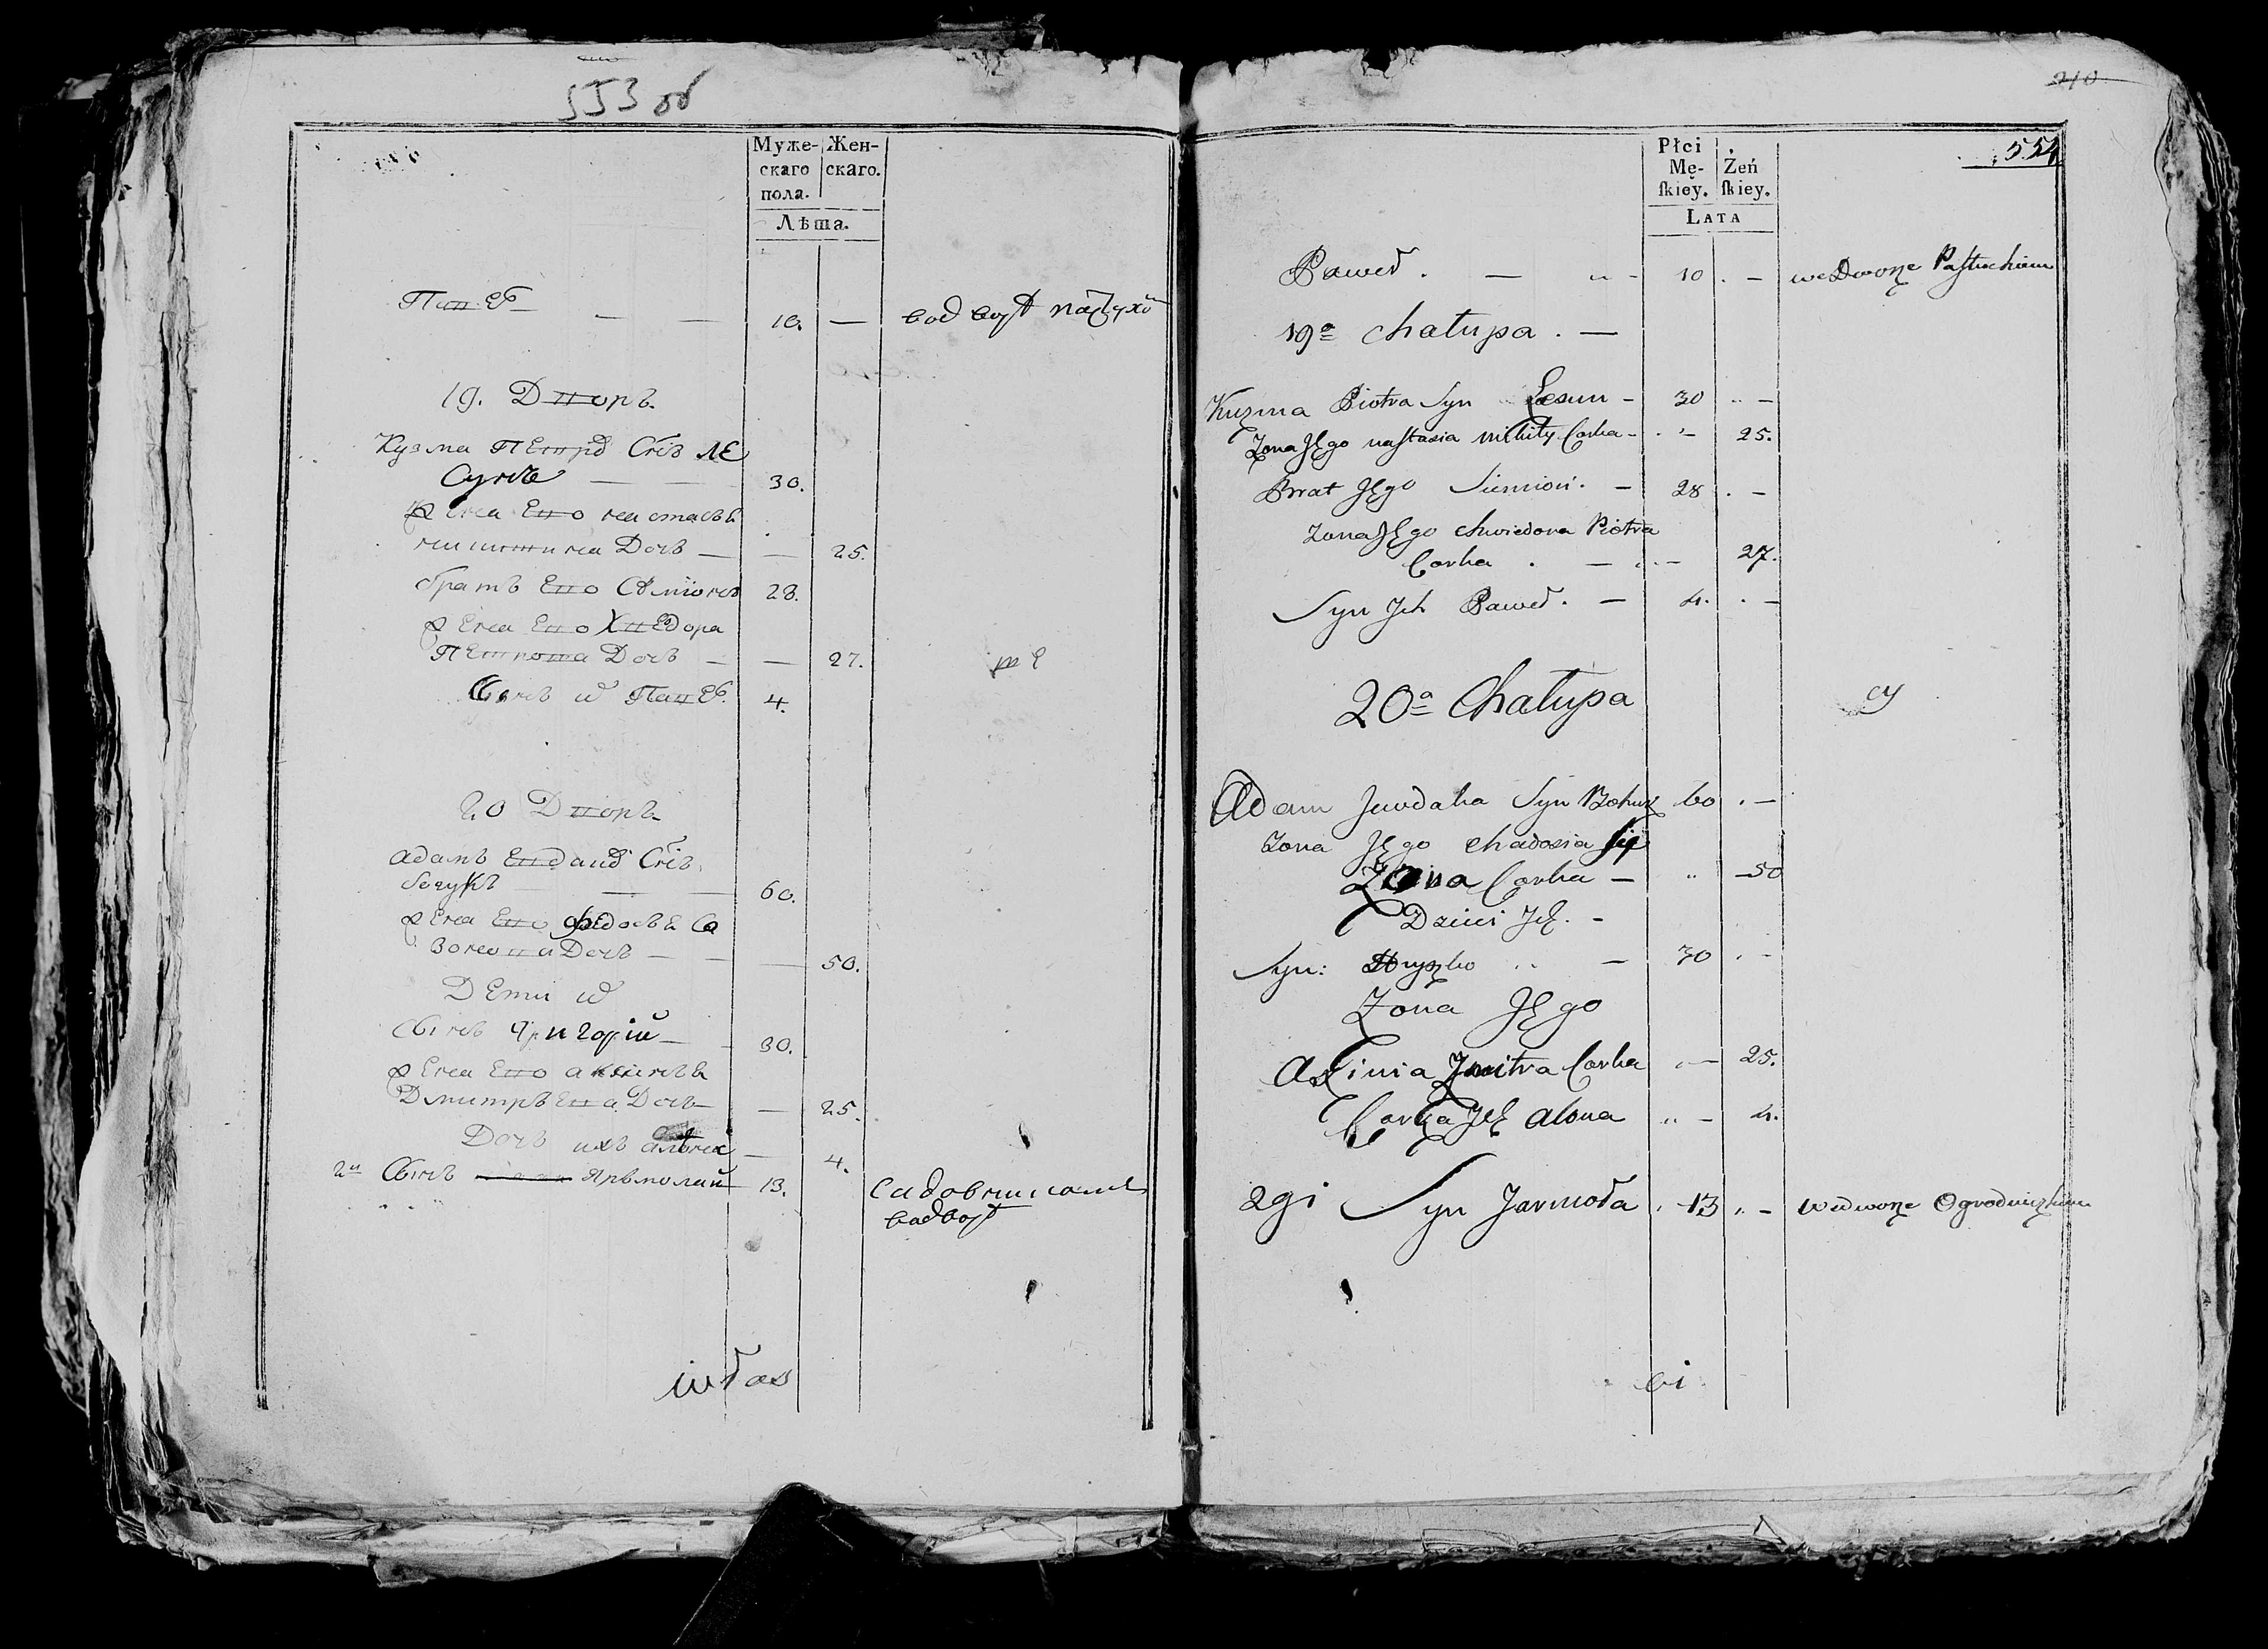 553 об
Муже-
скаго
пола.
Жен-
скаго.
Лѣта.
Павеђ — — 10. —
19. Дворъ.
Кузма Петра Снъ Ле
сунъ — — 30.
жена Ево настасья
никитина Дочь — — 25.
братъ Ево Семіонъ 28.
жена Ево Хведора
Петрова Дочь — — 27.
Сынъ их Павел. 4.
20 Дворъ
адамъ Евдаки Снъ
— — 60.
жена Ево федосья Са
зонова Дочь — — — 50.
Дети их
сынъ Григорій — 30.
жена Ево аксинья
Дмитрьева Дочь — — 25.
Дочь ихъ алена — 4.
2й Сынъ Ярьмолай 13.
210
554
Płci
Mę-
ſkiey.
Żeń
ſkiey.
Lata
Paweł . — 10 . — we Dworze Pastuchiem
19a chałupa . —
Kuzma Piotra Syn Lesun — 30 —
Żona Jęgo nastasia nikity Corka — 25.
Brat Jęgo Siemion. — 28 . —
Zona Jęgo chwiedora Piotra
Corka . — 27.
Syn Jch Paweł. — 4. . —
20a Chałupa
Adam Jewdaka Syn 60 . —
Zona Jęgo chadosia
Corka — 50
Dzieci Jch. —
Syn: Hryszko — 30 . —
Zona Jęgo
Axinia Zmitra Corka — 25.
Corka Jch alona — 4.
2gi Syn Jarmoła . 13 — we dworze Ogrodniczkiem